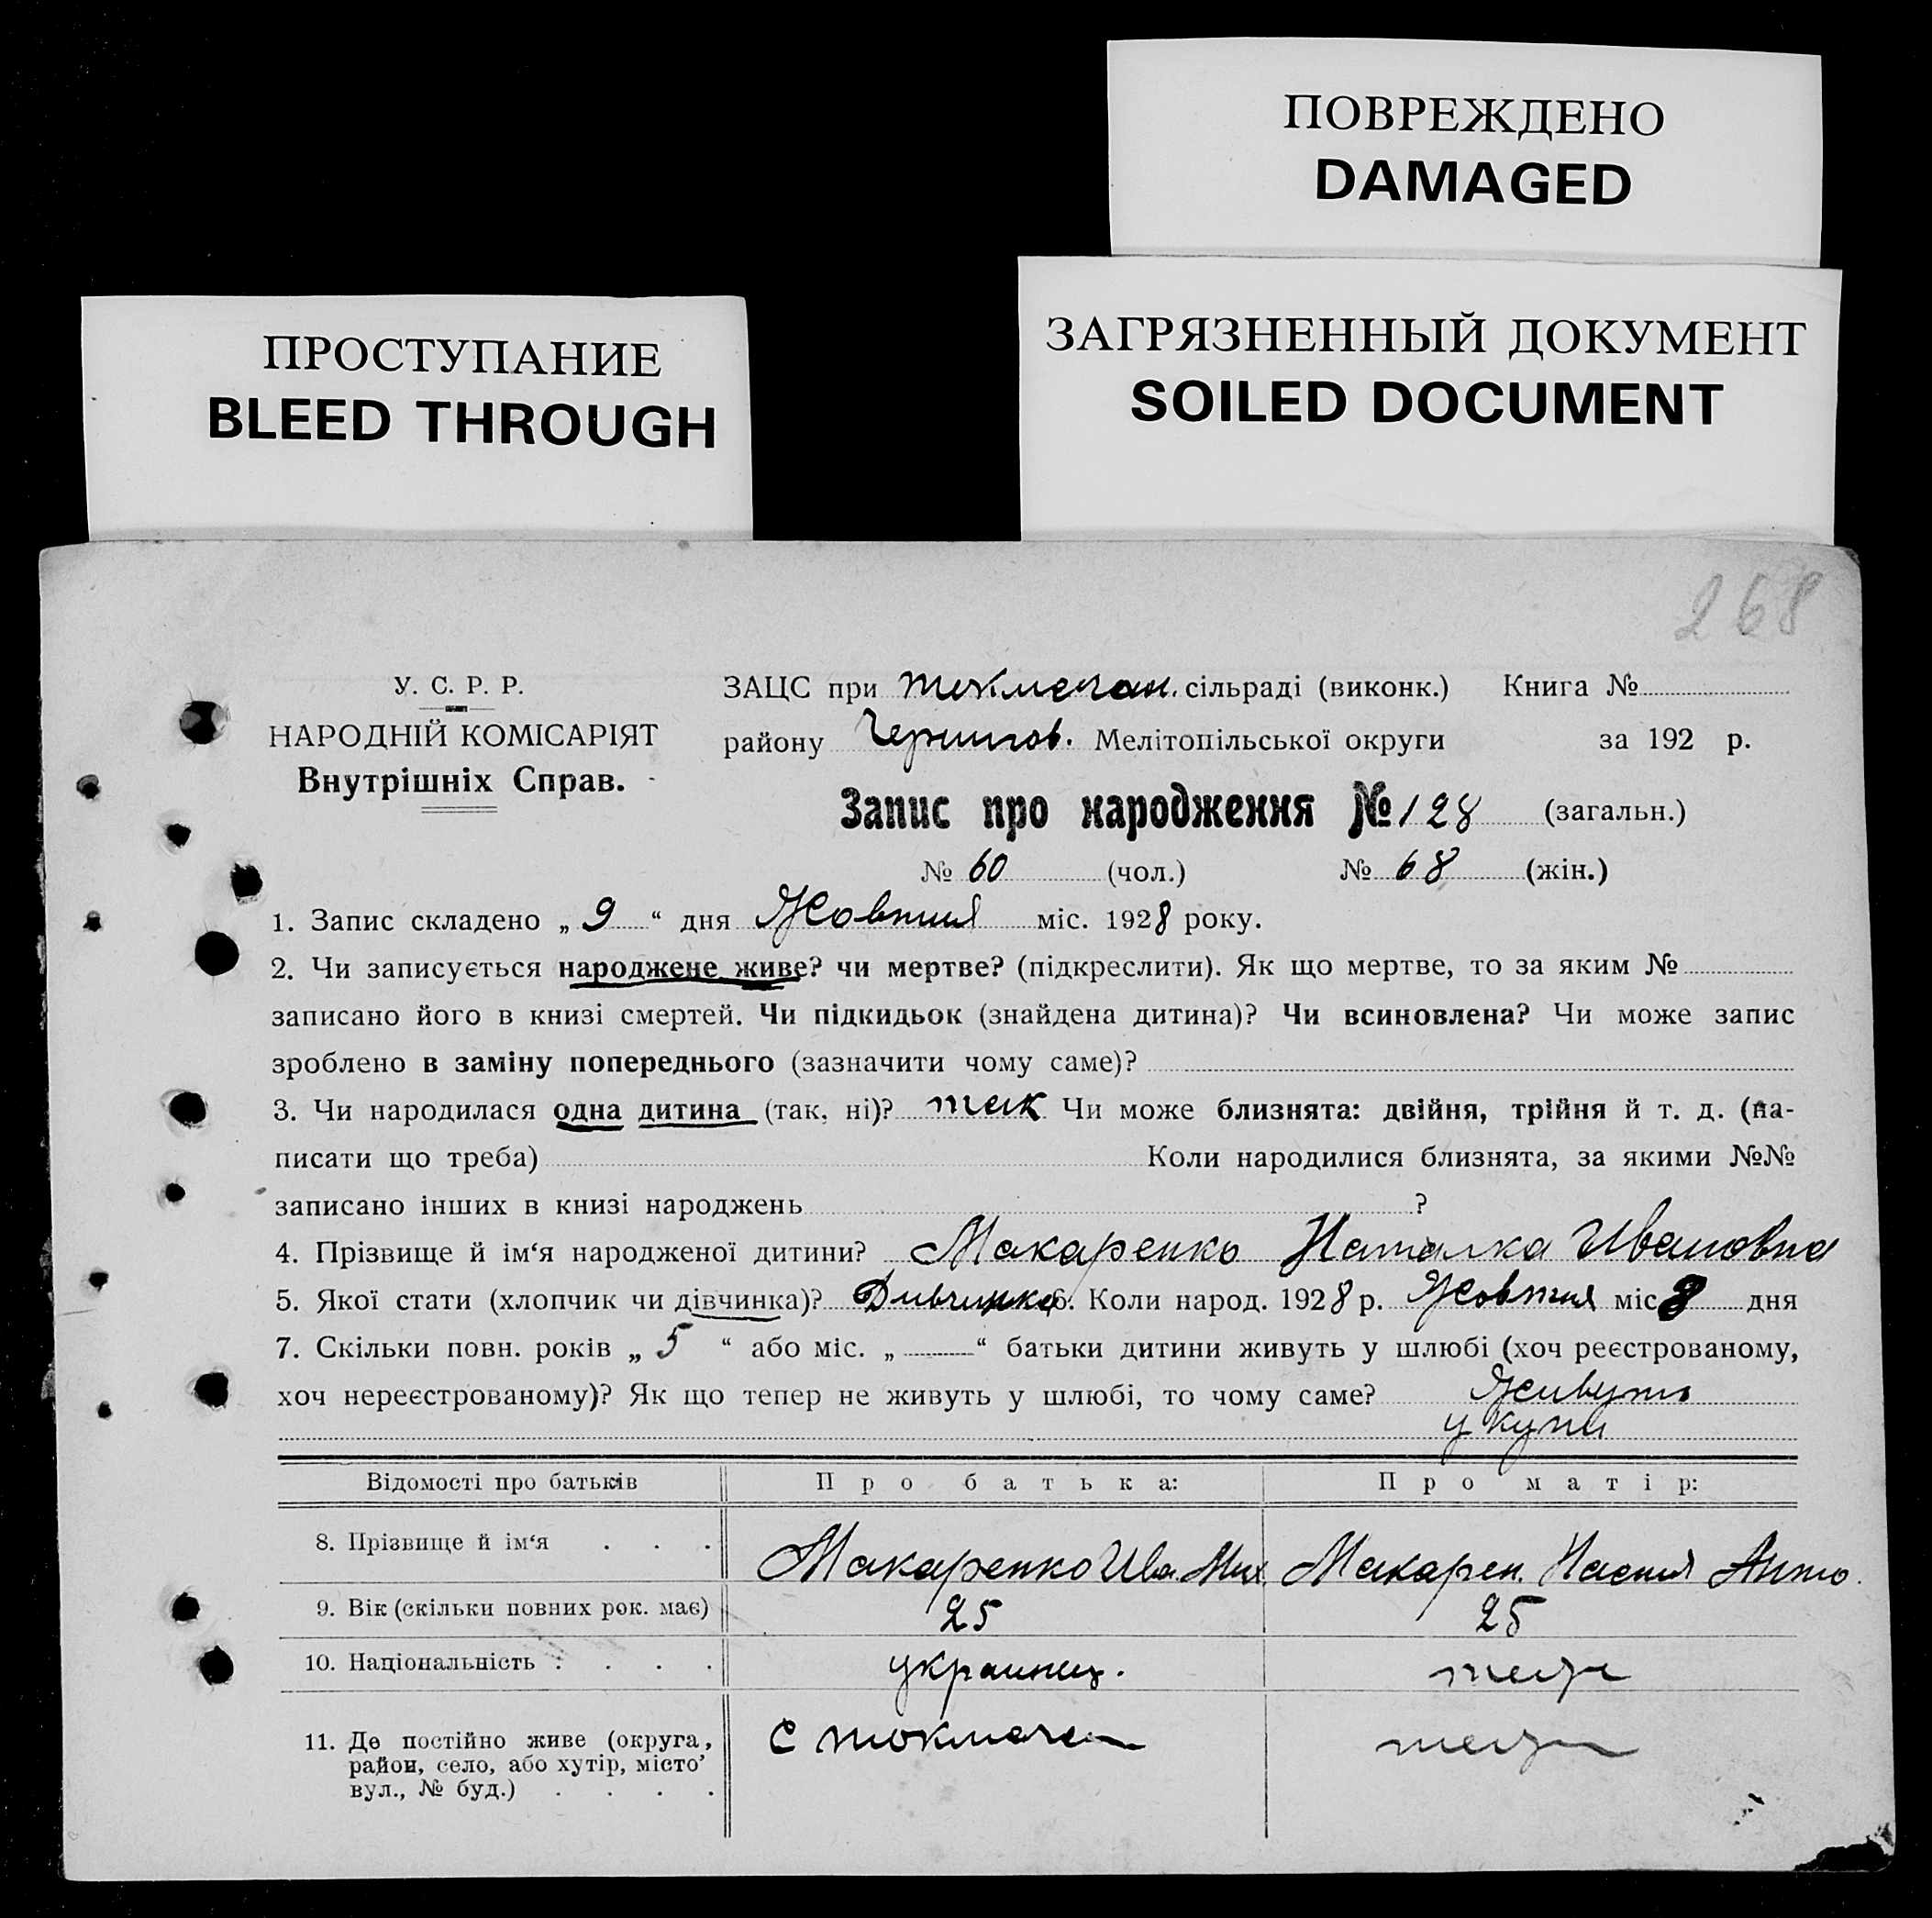 ПОВРЕЖДЕНО
DAMAGED
ПРОСТУПАНИЕ
BLEED THROUGH
ЗАГРЯЗНЕННЫЙ ДОКУМЕНТ
SOILED DOCUMENT
268
У. С. Р. Р.
НАРОДНІЙ КОМІСАРІЯТ
Внутрішніх Справ.
ЗАЦС при токмачан. сільраді (виконк.) Книга №
району Чернигов. Мелітопільської округи за 192 р.
Запис про народження № 128 (загальн.)
№ 60 (чол.) № 68 (жін.)
1. Запис складено „ 9 “ дня Жовтня міс. 1928 року.
2. Чи записується народжене живе? чи мертве? (підкреслити). Як що мертве, то за яким №
записано його в книзі смертей. Чи підкидьок (знайдена дитина)? Чи всиновлена? Чи може запис
зроблено в заміну попереднього (зазначити чому саме)?
3. Чи народилася одна дитина (так, ні)? так Чи може близнята: двійня, трійня й т. д. (на-
писати що треба) Коли народилися близнята, за якими №№
записано інших в книзі народжень ?
4. Прізвище й ім‘я народженої дитини? Макаренко Наталка Ивановна
5. Якої стати (хлопчик чи дівчинка)? Дивчинка 6. Коли народ. 1928 р. Жовтня міс 8 дня
7. Скільки повн. років „ 5 “ або міс. „ — “ батьки дитини живуть у шлюбі (хоч реєстрованому,
хоч нереєстрованому)? Як що тепер не живуть у шлюбі, то чому саме? Живуть
у купи
Відомості про батьків Про батька: Про матір:
8. Прізвище й ім‘я . . . Макаренко Ива. Мих. Макарен. Настя Анто.
9. Вік (скільки повних рок. має) 25 25
10. Національність . . . . украинец. тежи
11. Де постійно живе (округа, С токмачан тежи
район, село, або хутір, місто’
вул., № буд.) . . . .